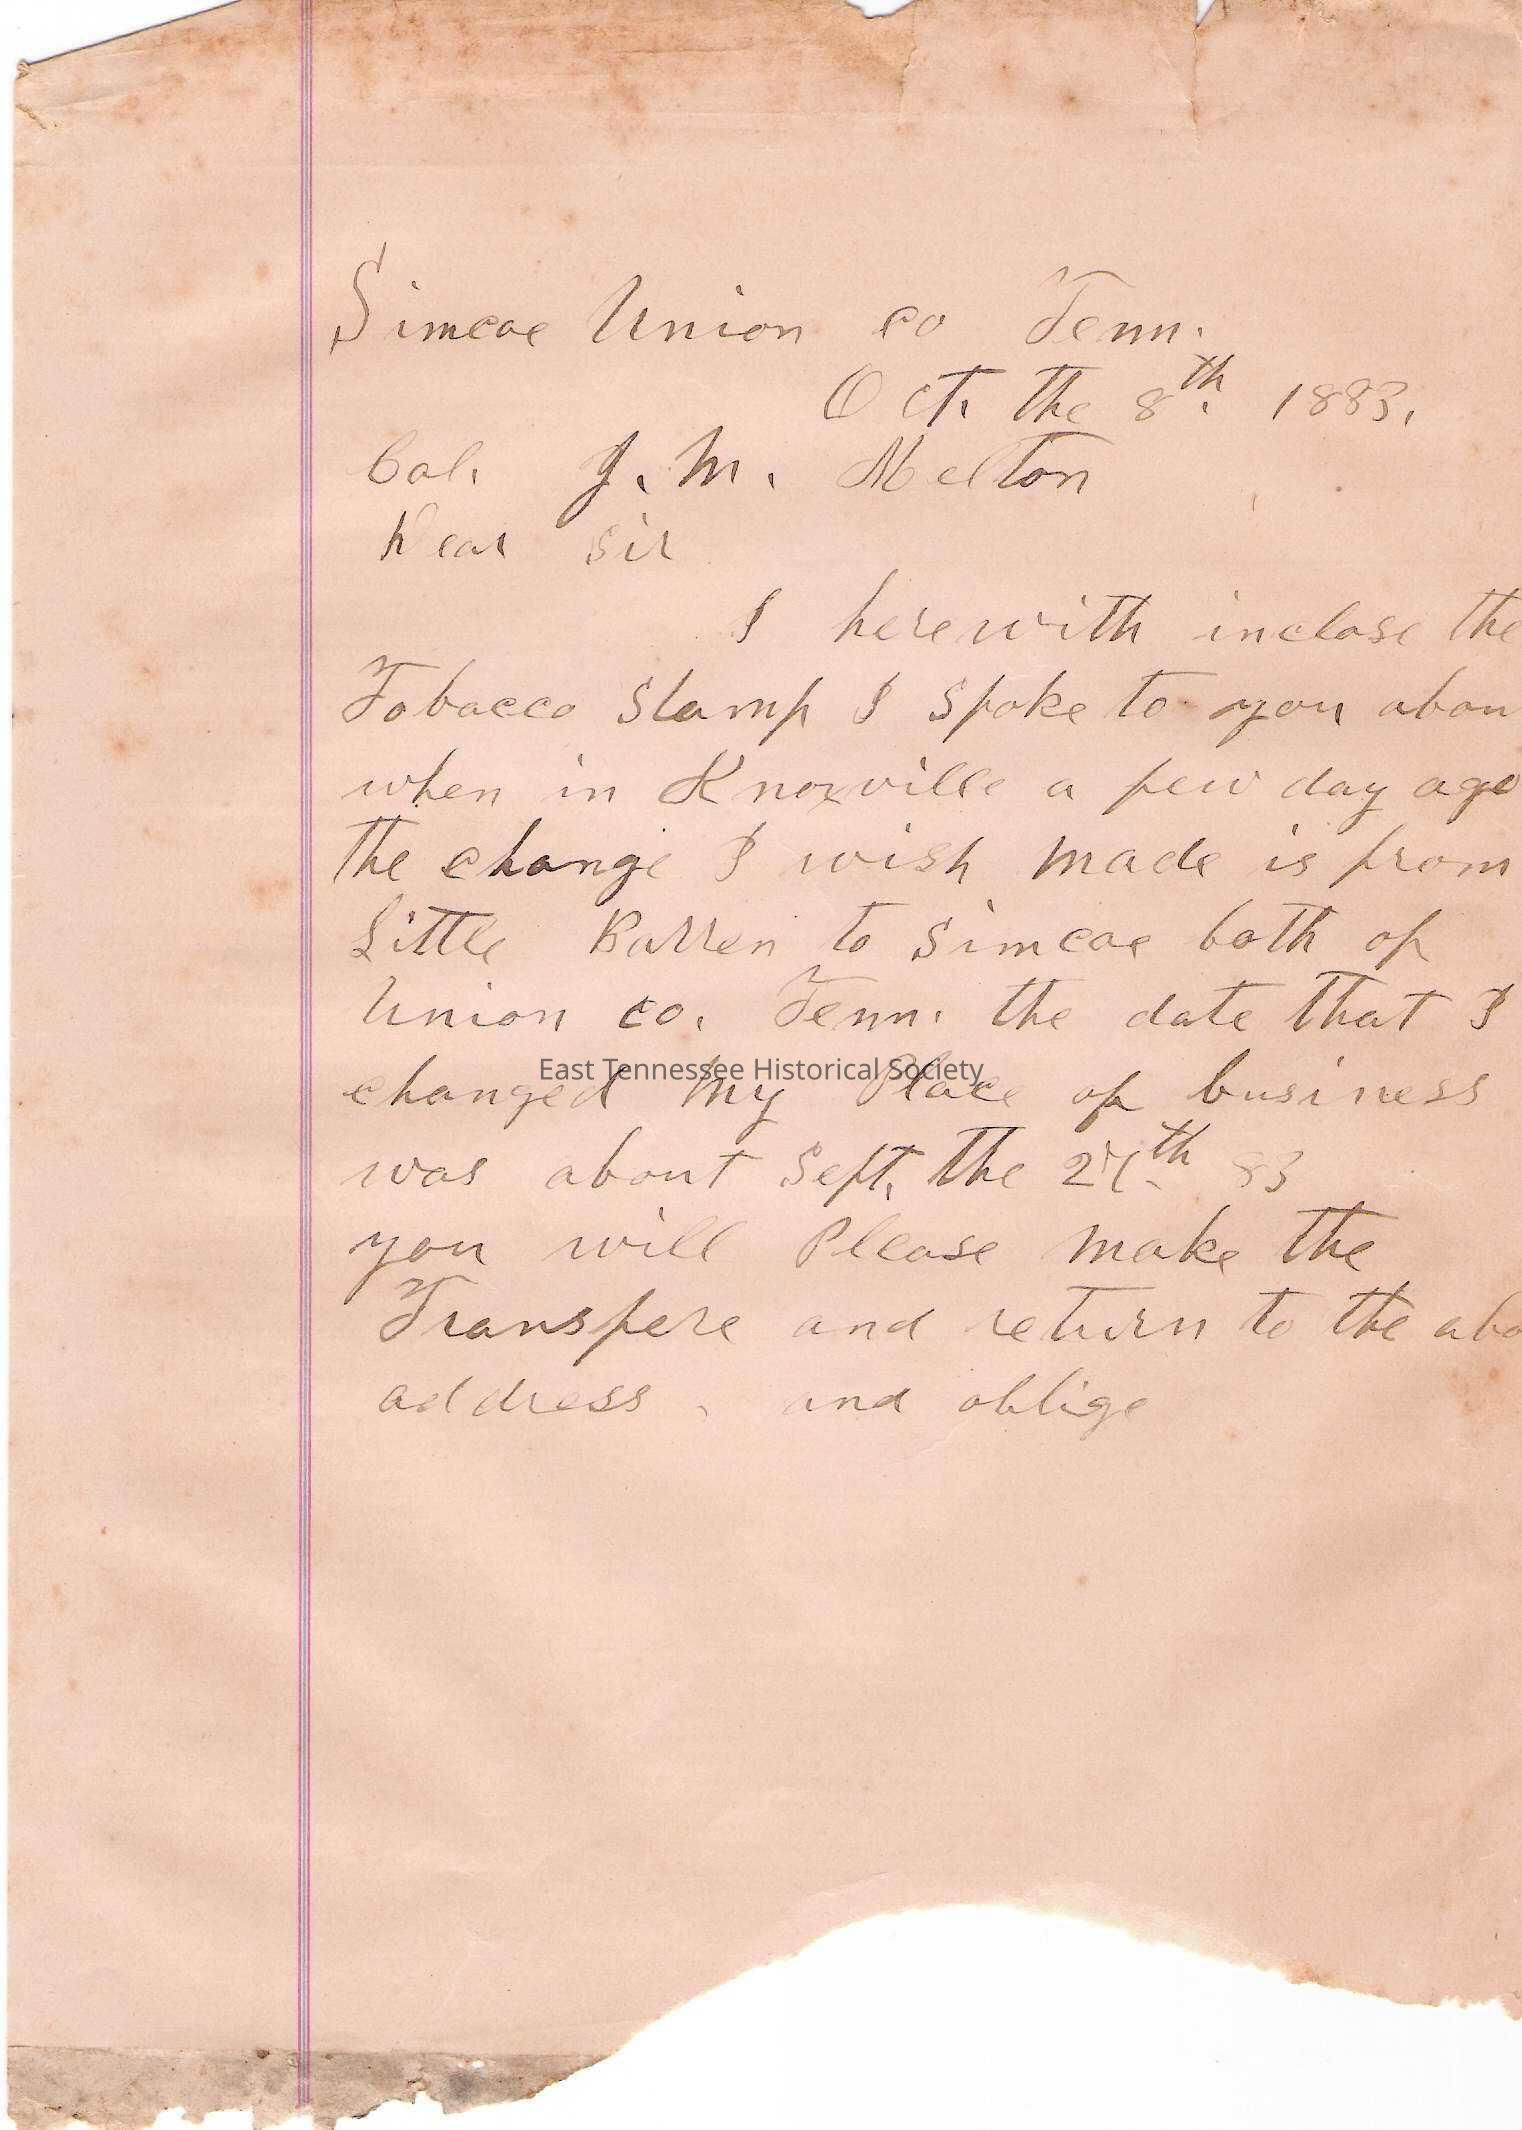 Simcoe Union co Tenn.
Oct. the 8th. 1883.
Col. J. M. Melton
Dear Sir
I herewith inclose the
Tobacco Stamp I Spoke to you abou
when in Knoxville a few day ago
the change I wish made is from
Little Barren to Simcoe both of
Union co. Tenn. the date that I
East Tennessee Historical Society
changed my Place of business
was about Sept. the 83
you will Please make the
Transfere and return to the abo
address. and oblige